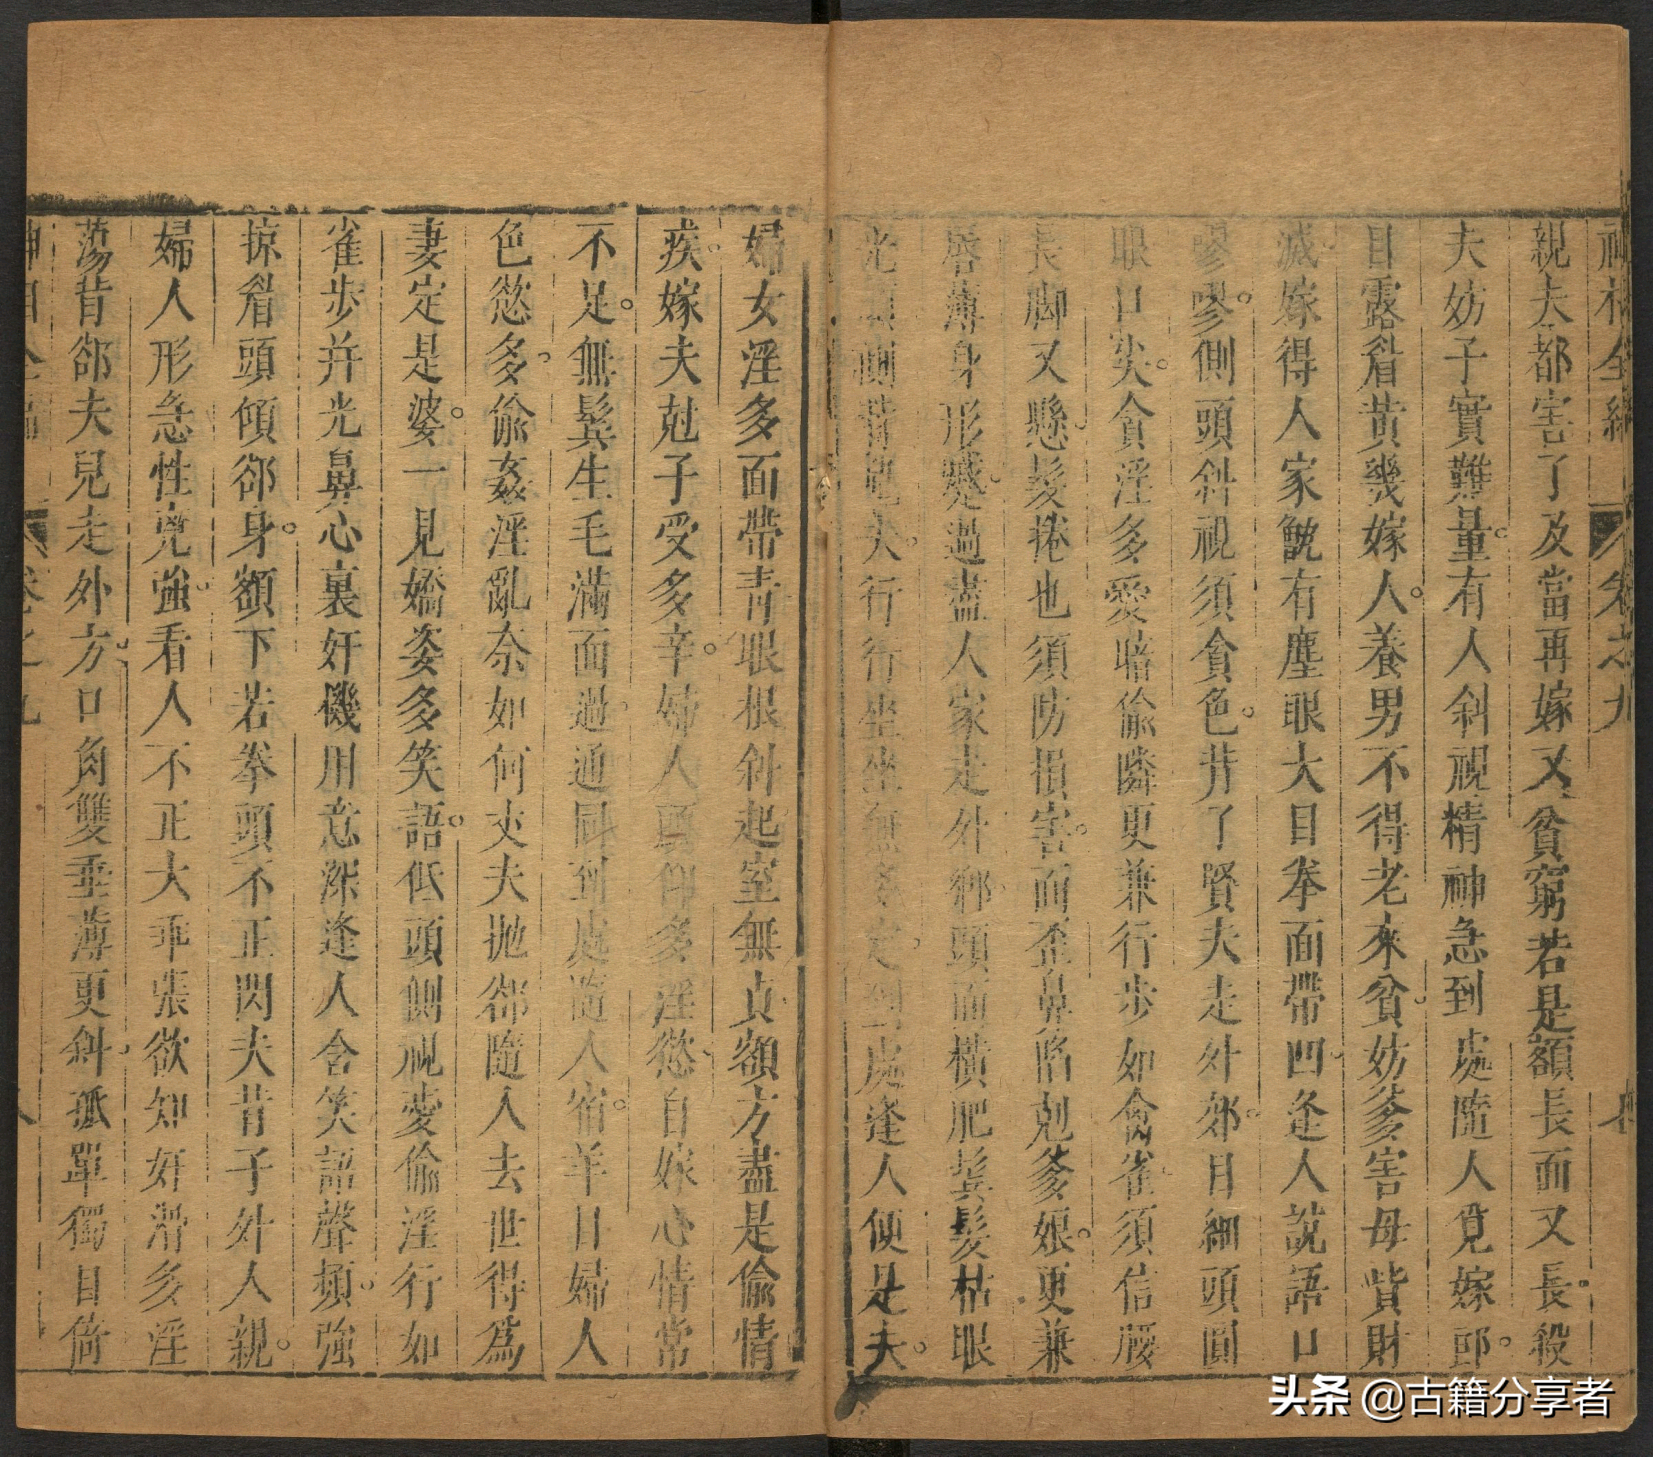 神相全編 卷之九
親夫都害了及當再嫁又貧窮若是額長面又長。殺
夫妨子實難量。有人斜視精神急到處隨人覓嫁郎。
目露眉黃幾嫁人。養男不得老來貧。妨爹害母貲財
滅。嫁得人家甑有塵眼大目拳面帶凹。逢人說語口
嘐嘐。側頭斜視須貪色。背了賢夫走外郊。目細頭圓
眼口尖。貪淫多愛暗偷隣更兼行步如禽雀須信
長脚又懸。髮捲也須防損害。面歪鼻陷剋爹娘。更兼
唇薄身形蹙。過盡人家走外鄉。頭面橫肥鬓髮枯眼
光 側背 夫。行行坐坐無 定。到處逢人便是夫。
婦女淫多面帶青眼根斜起室無貞額方盡是偷情
疾。嫁夫尅子受多辛。婦人頭仰多淫慾。自嫁心情常
不足。無鬓生毛滿面過。通同到處隨人宿。羊目婦人
色慾多。偷姦淫亂奈如何丈夫拋卻隨人去世得為
妻定是婆。一見嬌姿多笑語。低頭側視愛偷淫行如
雀步并光鼻心裏奸機用意深逢人含笑語聲頻。強
掠眉頭傾卻身。額下若拳頭不正閃夫背子外人親。
婦人形急性兇強。看人不正大乖張欲知奸滑多淫
蕩背卻夫兒走外方。口角雙垂薄更斜。孤單獨自倚
神相全編 卷之九
头条 @古籍分享者